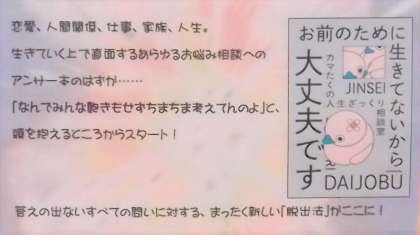 恋愛、人間関係、仕事、家族、人生。
生きていく上で直面するあらゆるお悩み相談への
アンサー本のはずが……
「なんでみんな飽きもせずちまちま考えてんのよ」と、
頭を抱えるところからスタート！
答えの出ないすべての問いに対する、まったく新しい「脱出法」がここに！
お前のために
生きてないから
大丈夫です
カマたくの
人生ざっくり
相談室
JINSEI
DAIJOBU